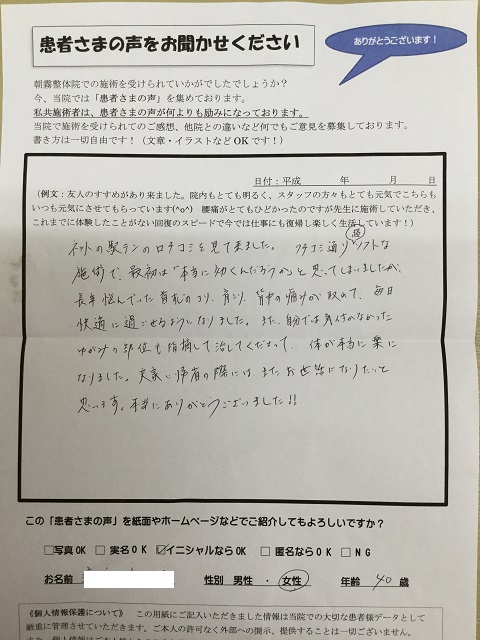 患者さまの声をお聞かせください
ありがとうございます!
朝霧整体院での施術を受けられていかがでしたでしょうか?
今、当院では「患者さまの声」を集めております。
私共施術者は、患者さまの声が何よりも励みになっております。
当院で施術を受けられてのご感想、他院との違いなど何でもご意見を募集しております。
書き方は一切自由です!(文章・イラストなどOKです!)
日付:平成 年 月 日
(例文:友人のすすめがあり来ました。院内もとても明るく、スタッフの方々もとても元気でこちらも
いつも元気にさせてもらっています(^o^) 腰痛がとてもひどかったのですが先生に施術していただき、
これまでに体験したことがない回復のスピードで今では仕事にも復帰し楽しく生活しています!)
ネットの駅テンの口コミを見て来ました。 クチコミ通り 超 ソフトな
施術で、最初は「本当に効くんだろうか」と思ってしまいましたが、
長年悩んでいた首札のコリ、肩コリ、背中の痛みが取れて、毎日
快適に過ごせるようになりました。また、自分では気付かなかった
ゆがみの部位も指摘して治してくださって、体が本当に楽に
なりました。実家に帰省の際には、またお世話になりたいと
思います。本当にありがとうございました!!
この「患者さまの声」を紙面やホームページなどでご紹介してもよろしいですか?
□写真OK □ 実名OK ☑イニシャルならOK □ 匿名ならOK □ NG
お名前 性別 男性 ・ 女性 年齢 40 歳
《個人情報保護について》 この用紙にご記入いただきました情報は当院での大切な患者様データとして
厳重に管理させていただきます。ご本人の許可なく外部への開示、提供することは一切ございません。